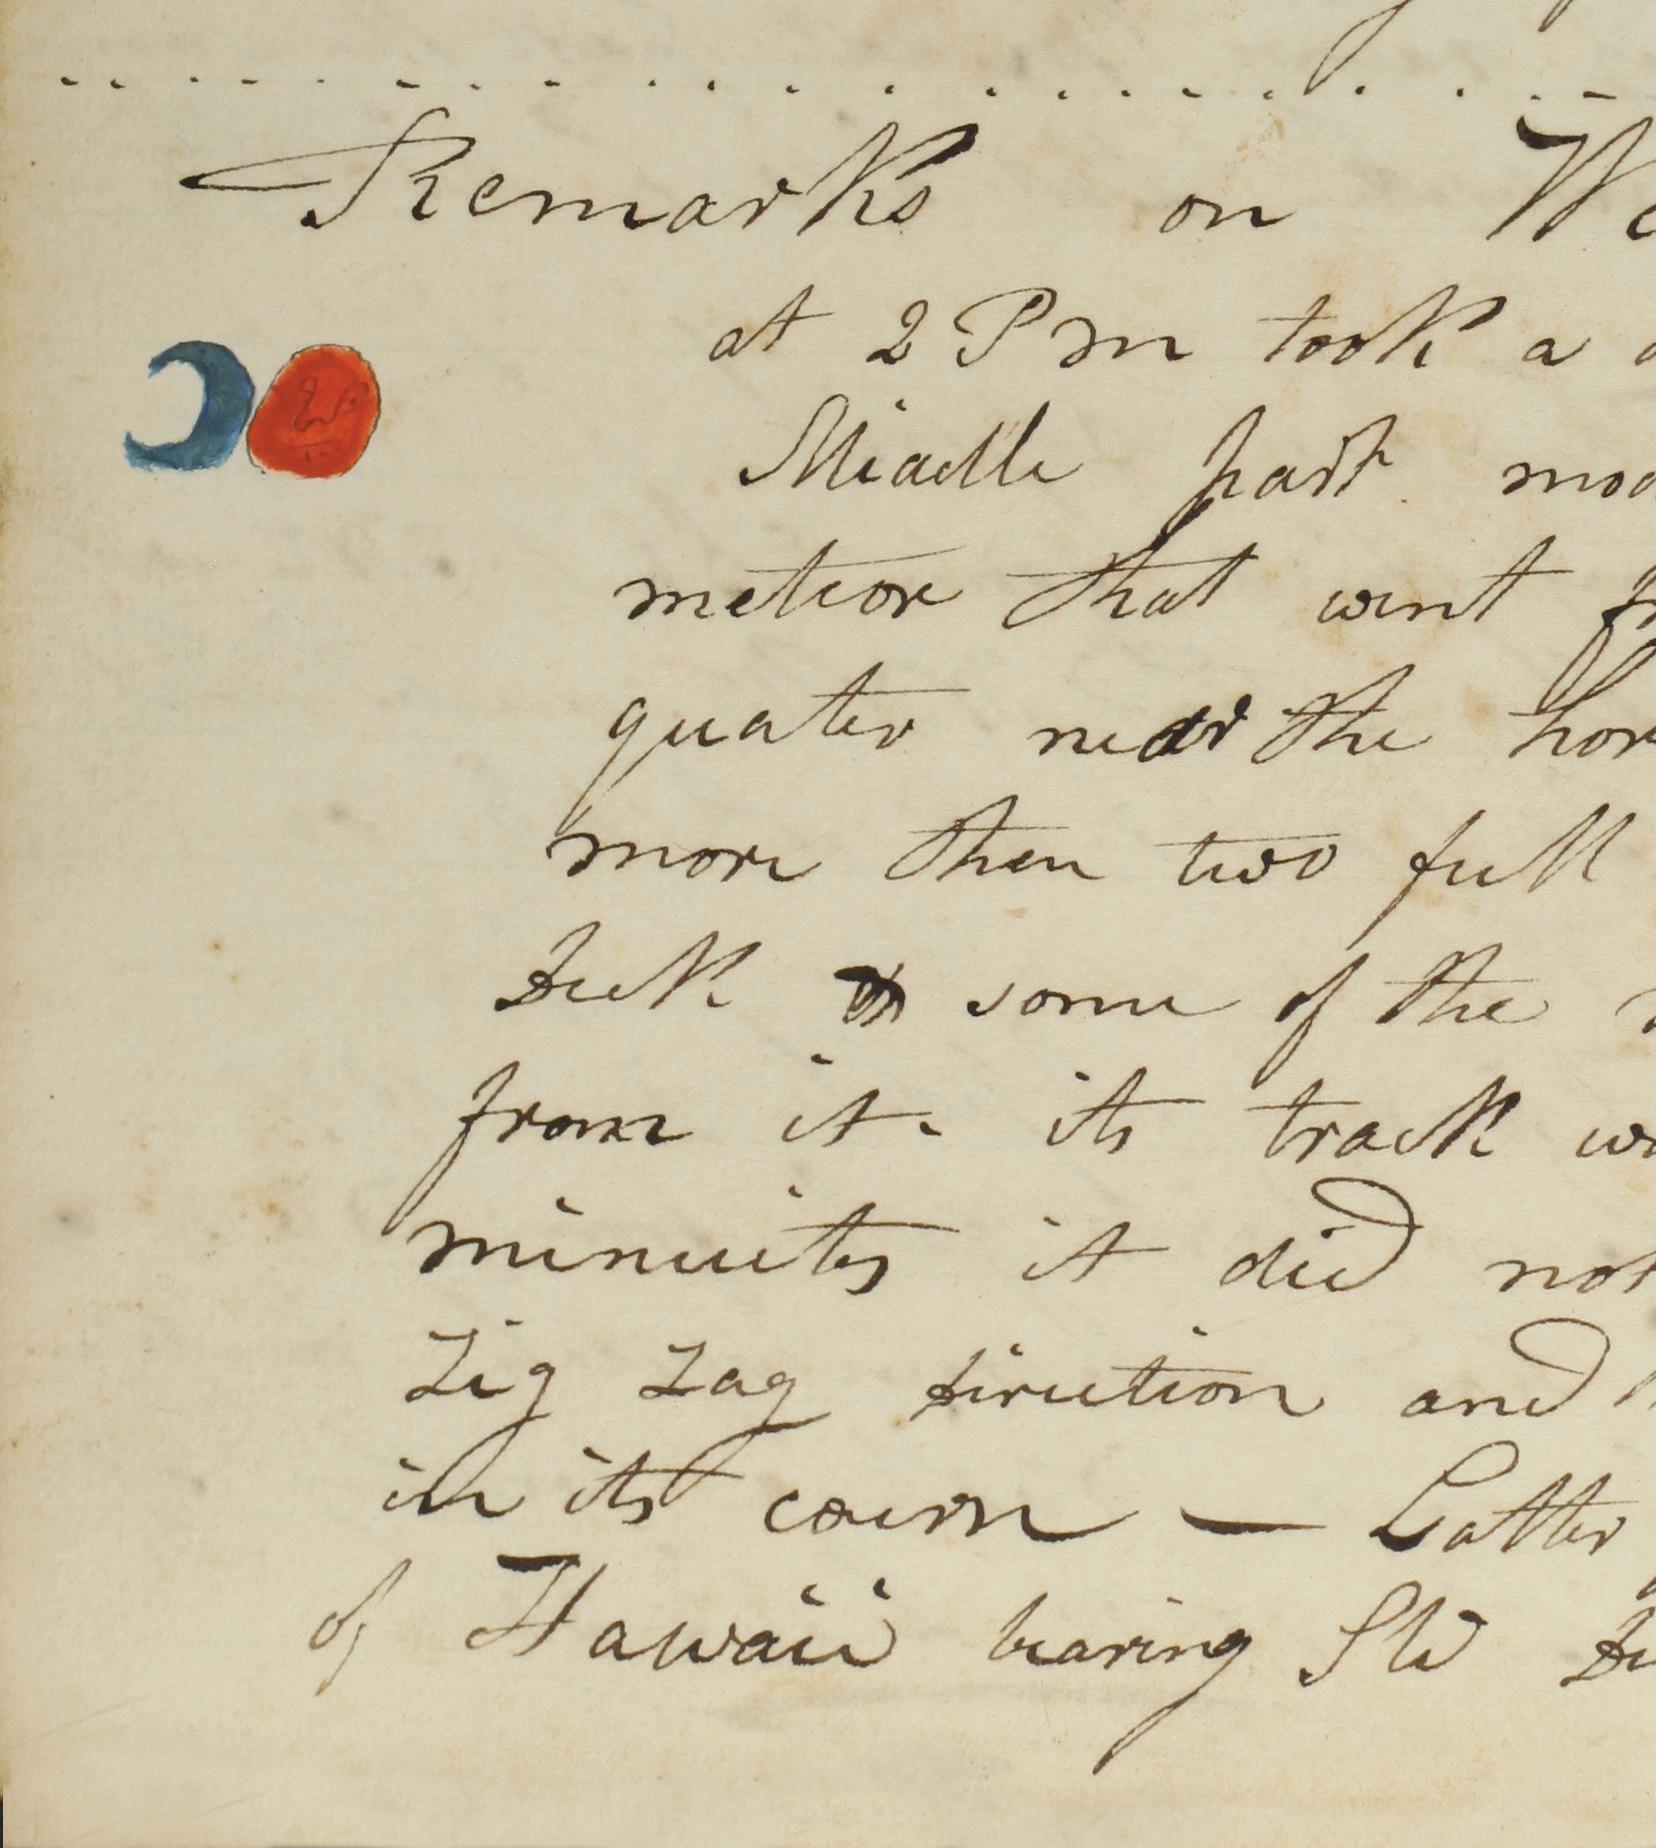 Remarks on We
at 2 Pm took a
Middle part mod
meteor that went fr
quater near the hor
more then two full
Deck some of the
from it. its track wa
minuites it did not
Zig Zag direction and
in its course — Latter
of Hawaii bearing SW